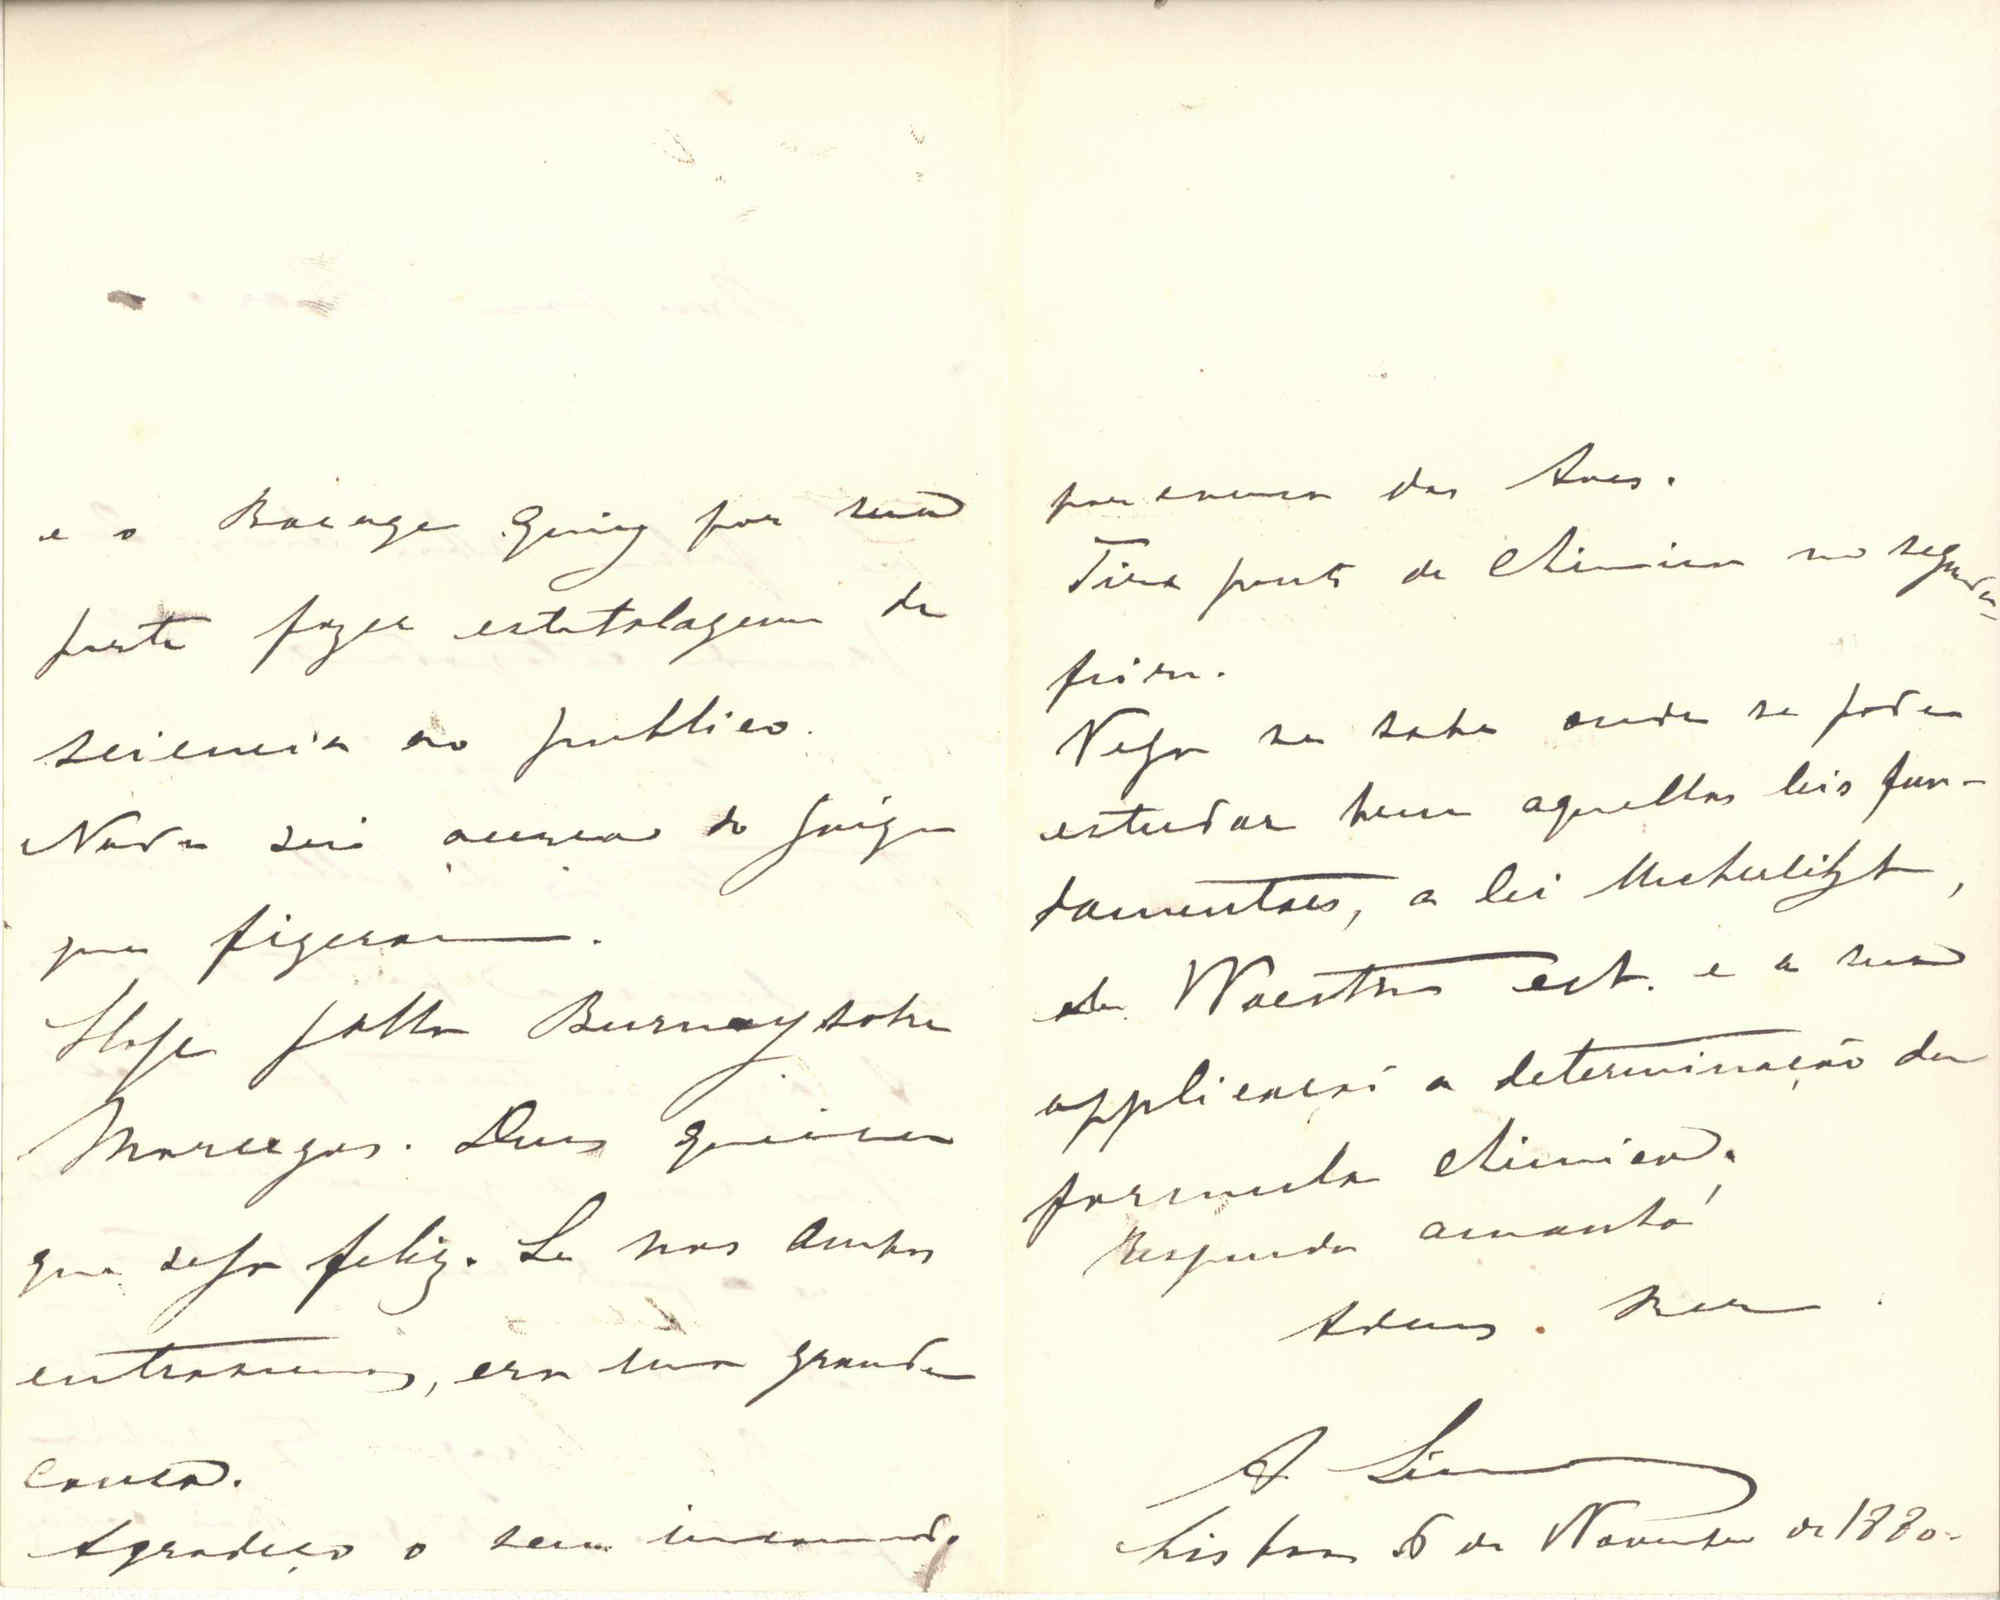 e o Bocage quiz por sua
parte fazer estatolagem de
sciencia ao publico.
Nada sei acerca do juizo
que fizeram.
Hoje falla Burnay sobre
Morcegos. Deus queira
que seja feliz. Se nos ambos
entrassemos, era uma grande
cousa.
Agradeço o seu incommodo
por causa das Aves.
Tira ponto de Chimica na segunda-
feira.
Veja se sabe onde se podem
estudar bem aquellas leis fun-
damentaes, a lei
de ect. e a sua
applicação a determinação da
formula chimica.
Responda amanhã
Adeus.
A Lima
Lisboa 6 de Novembro de 1880.